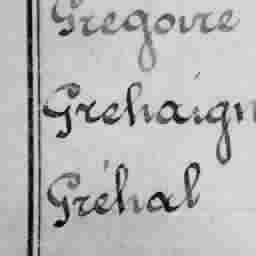 Gregoire
Grehaign
Gréhal